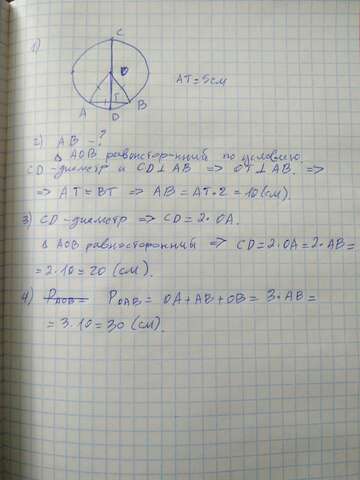 1)
C
O
AT = 5см
A
T
B
D
2) AB - ?
Δ AOB равносторонний по условию.
CD - диаметр и CD ⊥ AB ⇒ OT ⊥ AB. ⇒
⇒ AT = BT ⇒ AB = AT · 2 = 10(см).
3) CD - диаметр ⇒ CD = 2 · OA.
Δ AOB равносторонний ⇒ CD = 2 · OA = 2 · AB =
= 2 · 10 = 20 (см).
4) P_OAB = OA + AB + OB = 3 · AB =
= 3 · 10 = 30 (см).